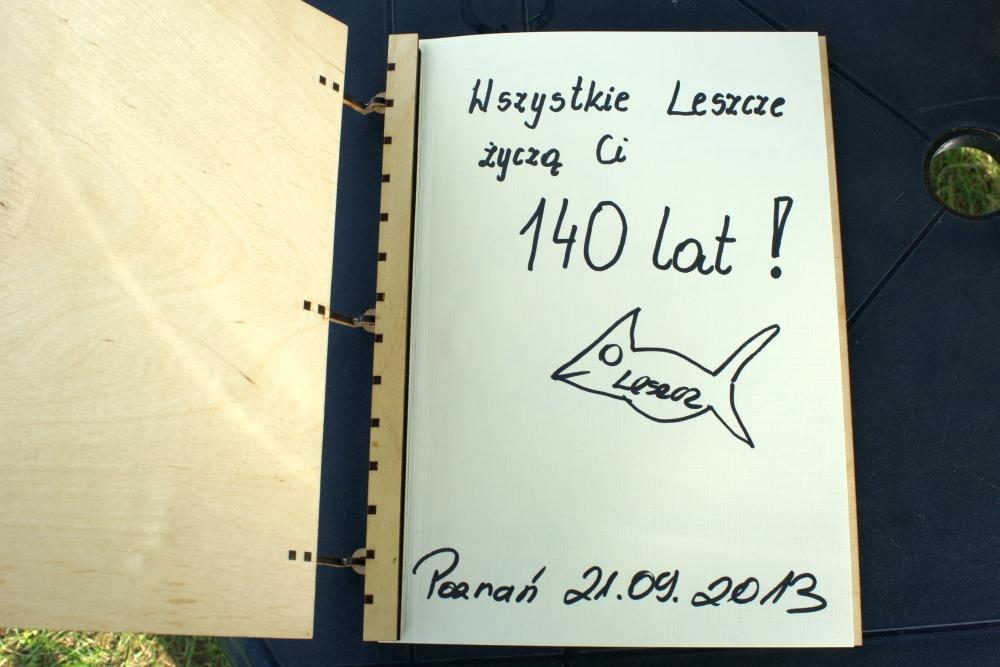 Wszystkie Leszcze
życzą Ci
140 lat !
Leszcz
Poznań 21.09.2013